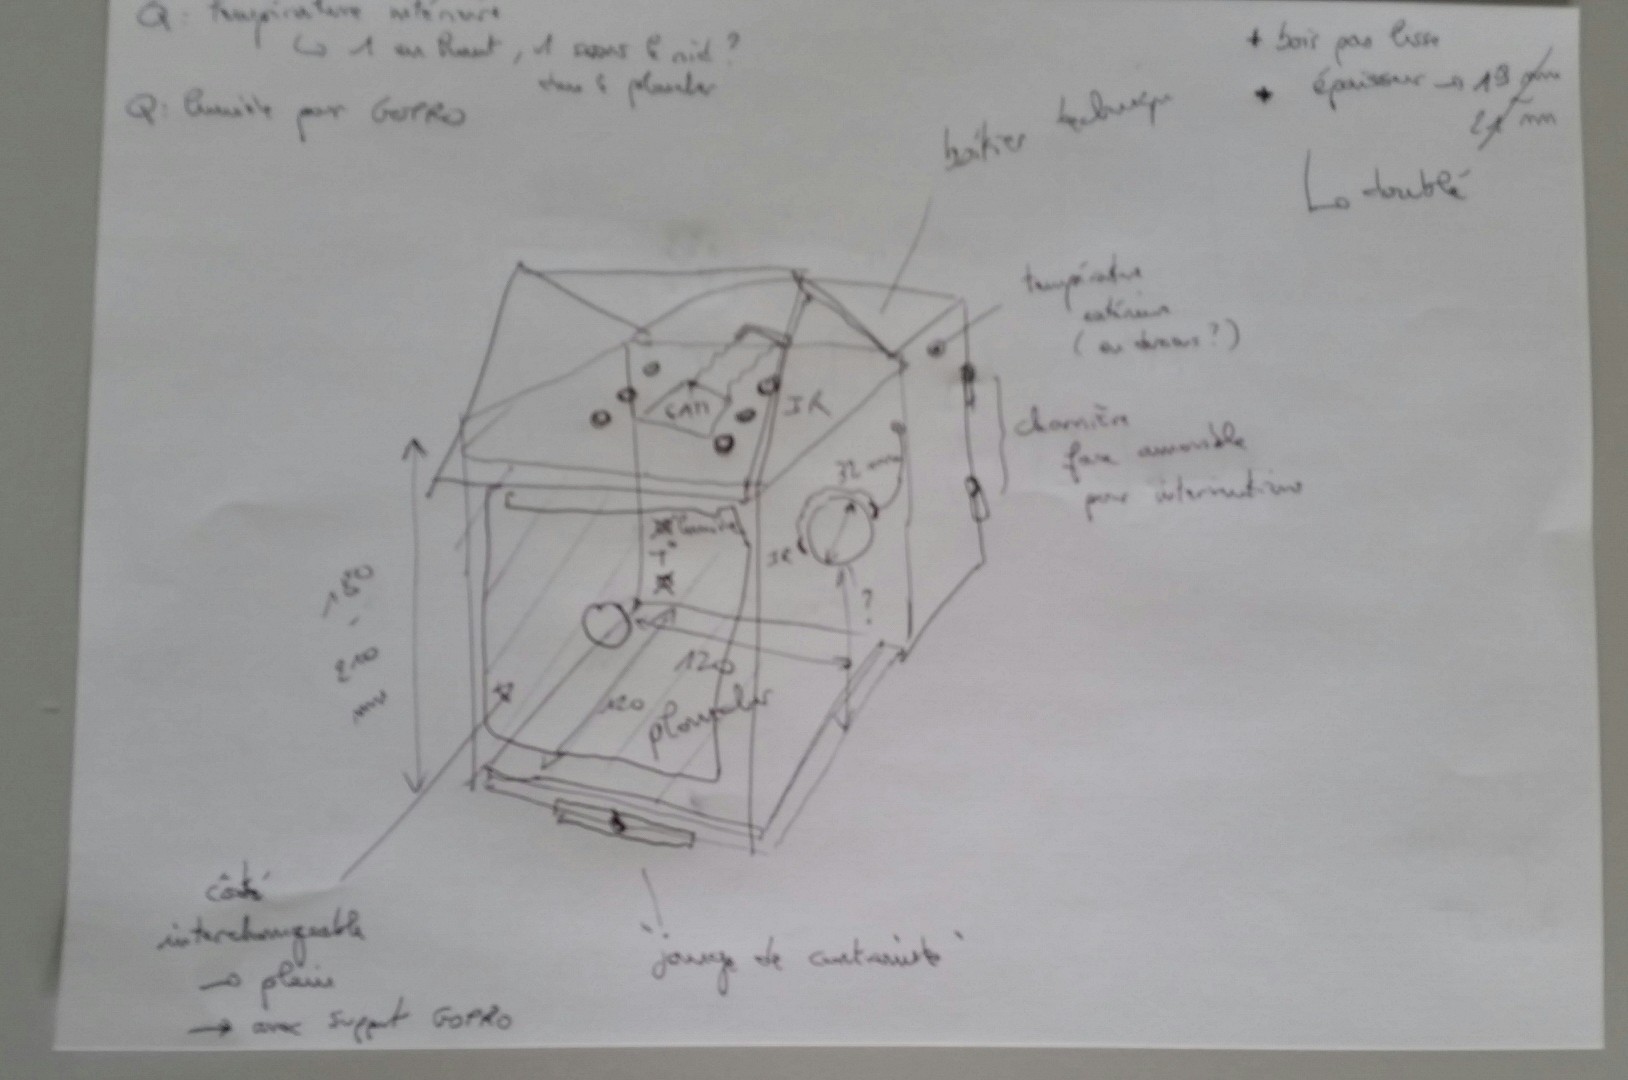 Q: température intérieure
↳ 1 en haut, 1 sous le nid ?
dans le plancher
Q: lumière pour GOPRO
+ bois pas lisse
+ épaisseur → 19 mm
21 mm
↳ doublé
boîtier technique
température
extérieur
( en dessous ? )
charnière
face amovible
pour interventions
CAM
IR
32 mm
IR
?
lumière
T°
180
-
210
mm
120
120
plancher
côté
interchangeable
→ plein
→ avec support GOPRO
"jauge de contrainte"